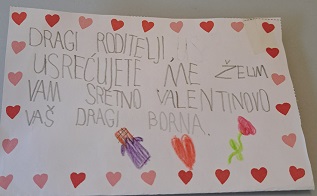 DRAGI RODITELJI!
USREĆUJETE ME ŽELIM
VAM SRETNO VALENTINOVO
VAŠ DRAGI BORNA.